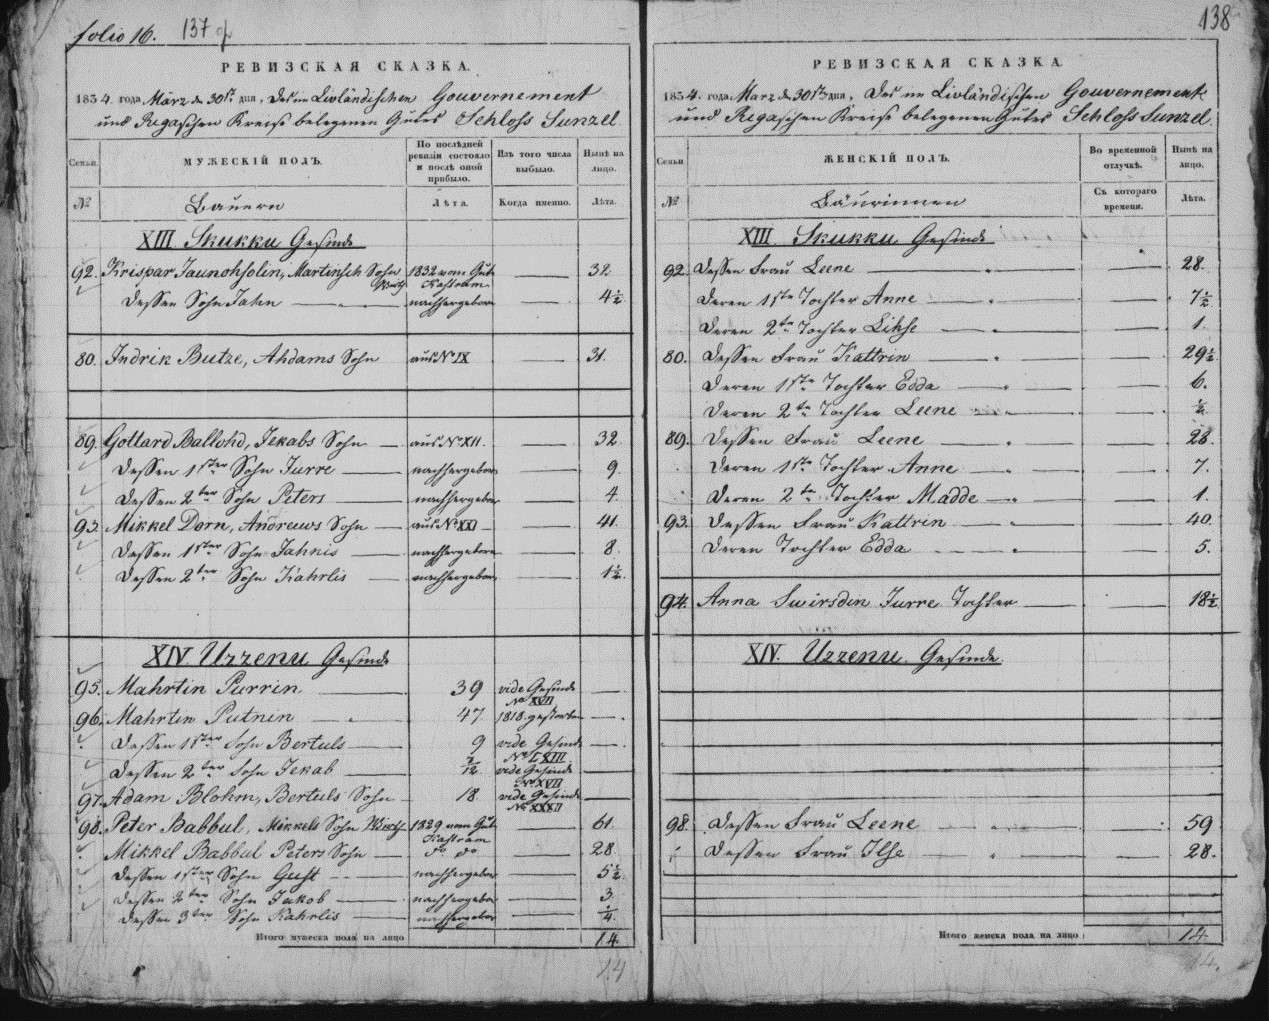 folio 16. 137 of
РЕВИЗСКАЯ СКАЗКА.
1834. года März d. 30ste дня, Des im Livländischen Gouvernement
und Rigaschen Kreise belegenen Gutes Schloss Sunzel
Семьи. МУЖЕСКІЙ ПОЛЪ. По послѣдней ревизіи состояло и послѣ оной прибыло. Изъ того числа выбыло. Нынѣ на лицо.
№ Bauern Лѣта. Когда именно. Лѣта.
XIII Skukku Gesinde
92. Krispar Jaunohsolin, Martinsch Sohn Wirth 1832 vom Gut Kastran — 32
Dessen Sohn Jahn — nachhergeboren — 4 1/2
80. Indrik Butze, Ahdams Sohn aus № IX — 31.
89. Gottard Ballohd, Jekabs Sohn — aus № XII. — 32.
Dessen 1ster Sohn Jurre — nachhergeboren — 9.
Dessen 2ter Sohn Peters — nachhergeboren — 4.
93. Mikkel Dorn, Andreews Sohn — aus № XXI — 41.
Dessen 1ster Sohn Jahnis — nachhergeboren — 8.
Dessen 2ter Sohn Kahrlis — nachhergeboren — 1 1/2.
XIV Uzzenu Gesinde
95. Mahrtin Purrin — 39 vide Gesinde № XVII —
96. Mahrtin Putnin — 47 1818. gestorben —
Dessen 1ster Sohn Bertuls — 9 vide Gesinde № LXIII —
Dessen 2ter Sohn Jekab — 7/12 vide Gesinde № XVII —
97. Adam Blohm, Bertuls Sohn — 18 vide Gesinde № XXXII —
98. Peter Babbul, Mikkels Sohn Wirth 1829 vom Gut Kastran — 61.
Mikkel Babbul Peters Sohn — do do — 28
Dessen 1ster Sohn Gust — nachhergeboren — 5 1/2
Dessen 2ter Sohn Jakob — nachhergeboren — 3
Dessen 3ter Sohn Kahrlis — nachhergeboren — 1/4.
Итого мужеска пола на лицо 14.
14
138
РЕВИЗСКАЯ СКАЗКА.
1834. года März d. 30ste дня, Des im Livländischen Gouvernement
und Rigaschen Kreise belegenen Gutes Schloss Sunzel.
Семьи. ЖЕНСКІЙ ПОЛЪ. Во временной отлучкѣ. Нынѣ на лицо.
№ Bäurinnen Съ котораго времени. Лѣта.
XIII Skukku Gesinde
92 Dessen Frau Leene — 28.
Deren 1ste Tochter Anne — 7 1/2
Deren 2te Tochter Lihse — 1.
80. Dessen Frau Kattrin — 29 1/2
Deren 1ste Tochter Edda — 6.
Deren 2te Tochter Leene — 1/2
89. Dessen Frau Leene — 28.
Deren 1ste Tochter Anne — 7.
Deren 2te Tochter Madde — 1.
93. Dessen Frau Kattrin — 40
Deren Tochter Edda — 5.
94. Anna Swirsdin Jurre Tochter — 18 1/2
XIV. Uzzenu. Gesinde.
98. Dessen Frau Leene — 59
Dessen Frau Ilse — 28.
Итого женска пола на лицо 14.
14.